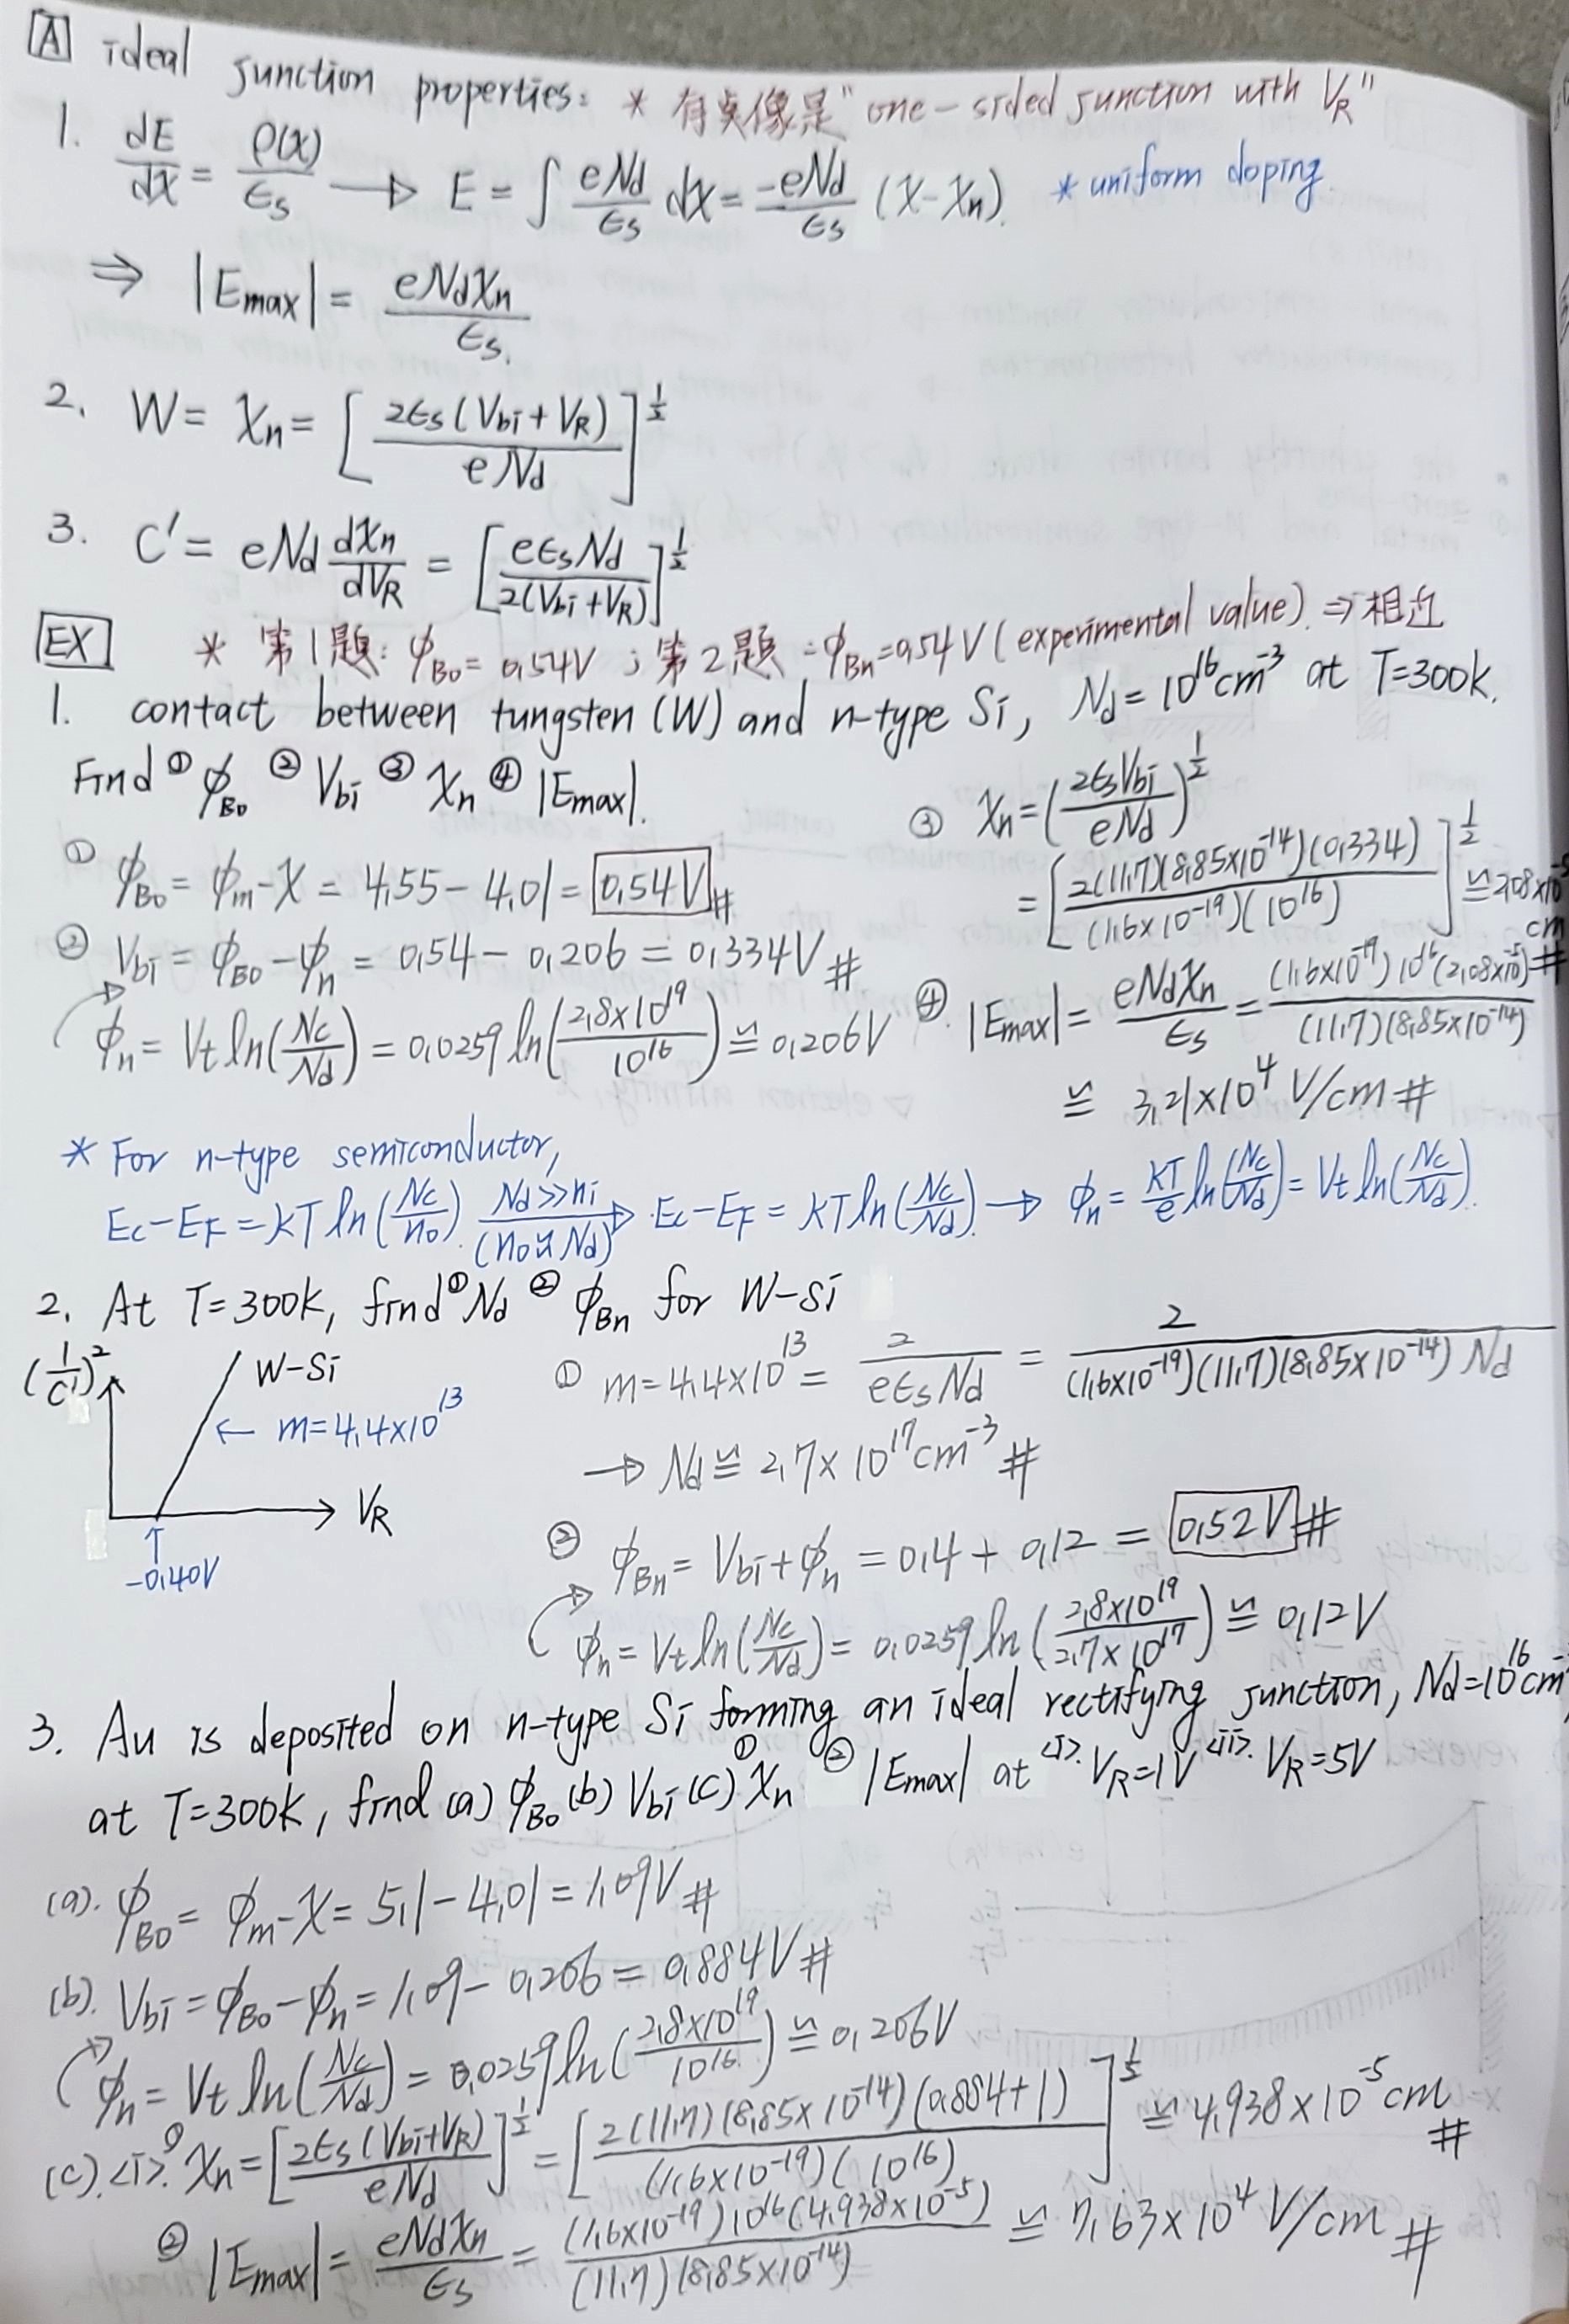 [A] ideal junction properties: * 有点像是 "one-sided junction with V_R"
1. dE/dx = ρ(x)/ϵs → E = ∫ eNd/ϵs dx = -eNd/ϵs (x-xn). * uniform doping.
⇒ |Emax| = eNdxn/ϵs.
2. W = xn = [2ϵs(Vbi+VR)/eNd]^1/2
3. C' = eNd dxn/dVR = [eϵsNd/2(Vbi+VR)]^1/2
[EX] * 第1題: ϕB0 = 0.54V ; 第2題: ϕBn = 0.54V (experimental value). ⇒ 相近
1. contact between tungsten (W) and n-type Si, Nd = 10^16 cm^-3 at T=300k.
Find ① ϕB0 ② Vbi ③ xn ④ |Emax|.
① ϕB0 = ϕm - χ = 4.55 - 4.01 = 0.54V #
② Vbi = ϕB0 - ϕn = 0.54 - 0.206 = 0.334V #
ϕn = Vt ln(Nc/Nd) = 0.0259 ln(2.8×10^19/10^16) ≌ 0.206V
③ xn = (2ϵsVbi/eNd)^1/2
= [2(11.7)(8.85×10^-14)(0.334)/(1.6×10^-19)(10^16)]^1/2 ≌ 2.08×10^-5 cm #
④ |Emax| = eNdxn/ϵs = (1.6×10^-19)10^16(2.08×10^-5)/(11.7)(8.85×10^-14)
≌ 3.21×10^4 V/cm #
* For n-type semiconductor,
Ec-EF = kT ln(Nc/n0). Nd≫ni (n0≈Nd) → Ec-EF = kT ln(Nc/Nd) → ϕn = kT/e ln(Nc/Nd) = Vt ln(Nc/Nd).
2. At T=300k, find ① Nd ② ϕBn for W-Si
(1/C')^2
W-Si
← m=4.4×10^13
VR
↑
-0.40V
① m=4.4×10^13 = 2/eϵsNd = 2/(1.6×10^-19)(11.7)(8.85×10^-14)Nd
→ Nd ≌ 2.7×10^17 cm^-3 #
② ϕBn = Vbi+ϕn = 0.4 + 0.12 = 0.52V #
ϕn = Vt ln(Nc/Nd) = 0.0259 ln(2.8×10^19/2.7×10^17) ≌ 0.12V
3. Au is deposited on n-type Si forming an ideal rectifying junction, Nd=10^16 cm^-
at T=300k, find (a) ϕB0 (b) Vbi (c) ① xn ② |Emax| at <i>. VR=1V <ii>. VR=5V
(a). ϕB0 = ϕm-χ = 5.1-4.01 = 1.09V #
(b). Vbi = ϕB0-ϕn = 1.09-0.206 = 0.884V #
ϕn = Vt ln(Nc/Nd) = 0.0259 ln(2.8×10^19/10^16) ≌ 0.206V
(c). <i>. ① xn = [2ϵs(Vbi+VR)/eNd]^1/2 = [2(11.7)(8.85×10^-14)(0.884+1)/(1.6×10^-19)(10^16)]^1/2 ≌ 4.938×10^-5 cm #
② |Emax| = eNdxn/ϵs = (1.6×10^-19)10^16(4.938×10^-5)/(11.7)(8.85×10^-14) ≌ 7.63×10^4 V/cm #